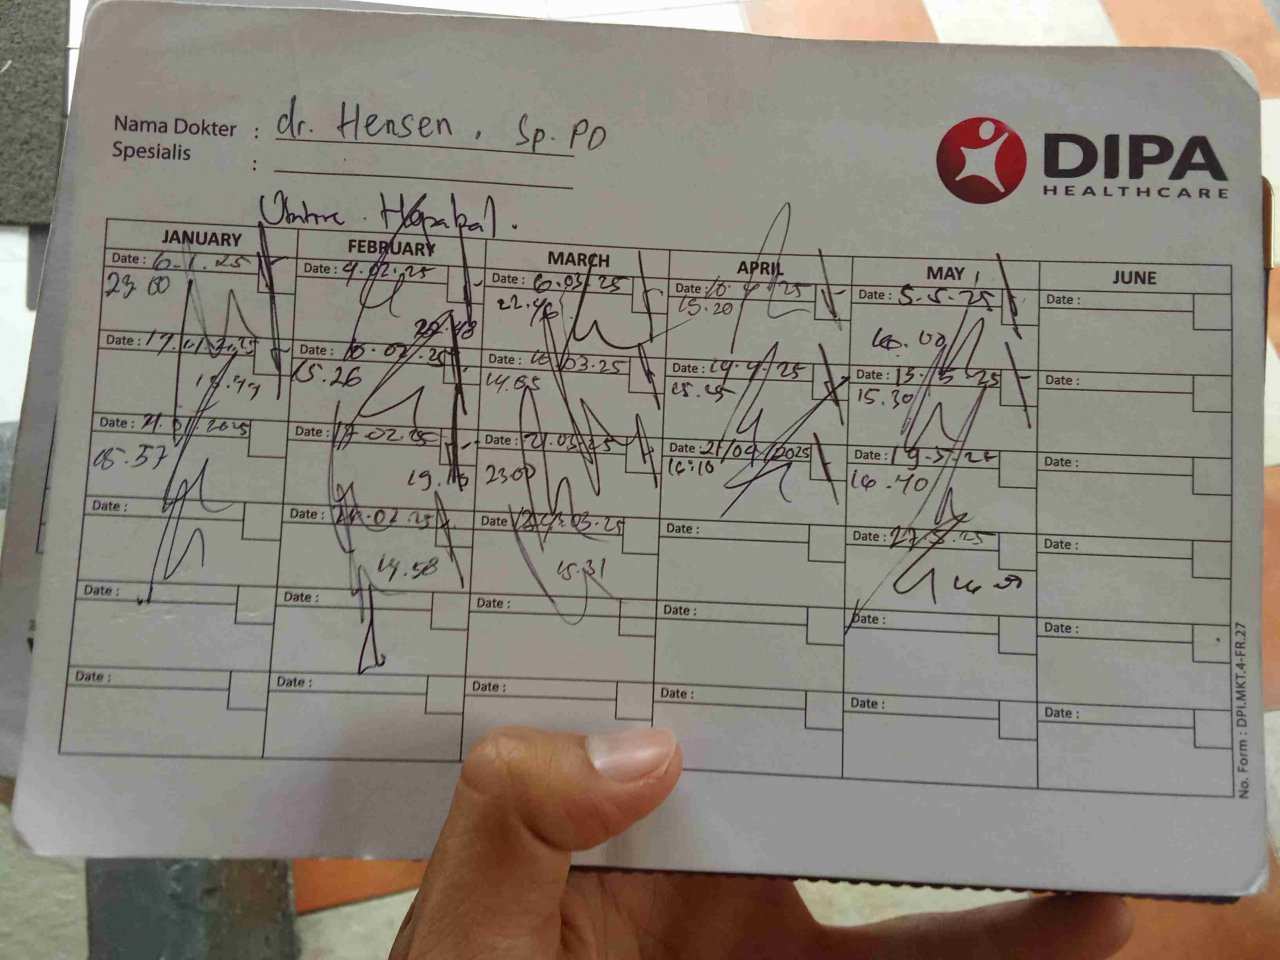 Nama Dokter : dr. Hensen, Sp. PD
Spesialis :
DIPA
HEALTHCARE
JANUARY FEBRUARY MARCH APRIL MAY JUNE
Date : 6-1.25 Date : 4.02.25 Date : 6.03.25 Date : 10.4.25 Date : 5-5.25 Date :
23 00 22.46 15.20 16.00
20.48
Date : Date : 10.02.25 Date : 10.03.25 Date : 14.4.25 Date : 15-5-25 Date :
15.26 14.05 15.30
Date : 21.01.2025 Date : 17.02.25 Date : 21.03.25 Date : 21/04/2025 Date : 19-5-25 Date :
15.57 2300 16:10 16.40
Date : Date : 24.02.25 Date : 24.03.25 Date : Date : 27.5.25 Date :
14.58 15.31
Date : Date : Date : Date : Date : Date :
Date : Date : Date : Date : Date : Date :
No. Form : DPI.MKT.4-FR.27